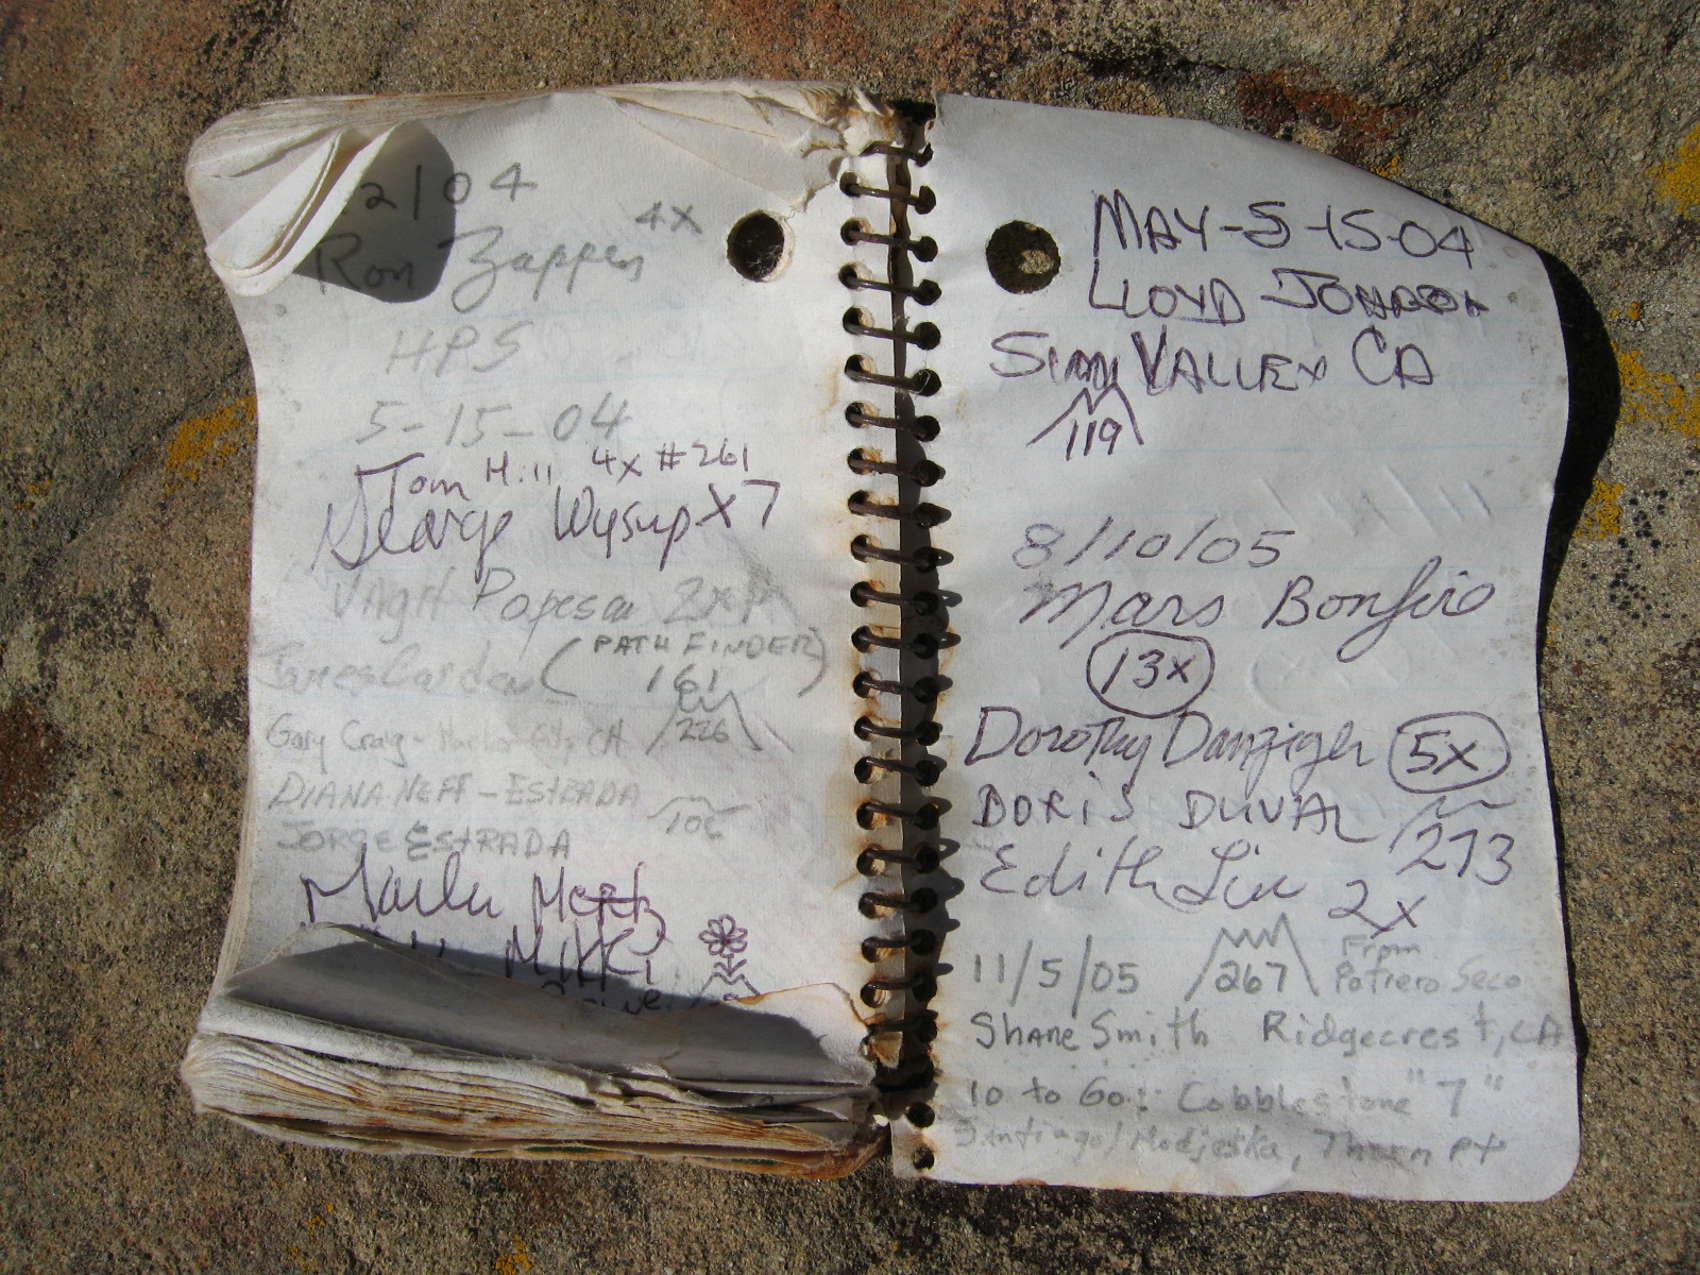 2/04
Ron Zappen 4X
HPS
5-15-04
Tom Hill 4x #261
George Wysup X7
Popescu 2x
James Carden (PATH FINDER)
161
Gary Craig - CA 226
DIANA NEFF-ESTRADA
106
JORGE ESTRADA
MAY-5-15-04
LLOYD JOHNSON
Simi VALLEY CA
119
8/10/05
Mars Bonfire
13x
Dorothy Danziger 5x
BORIS DUVAL 273
Edith Liu 2x
11/5/05 267 From Potrero Seco
Shane Smith Ridgecrest, CA
10 to Go: Cobblestone "7"
Santiago/Modjeska, Thorn Pt